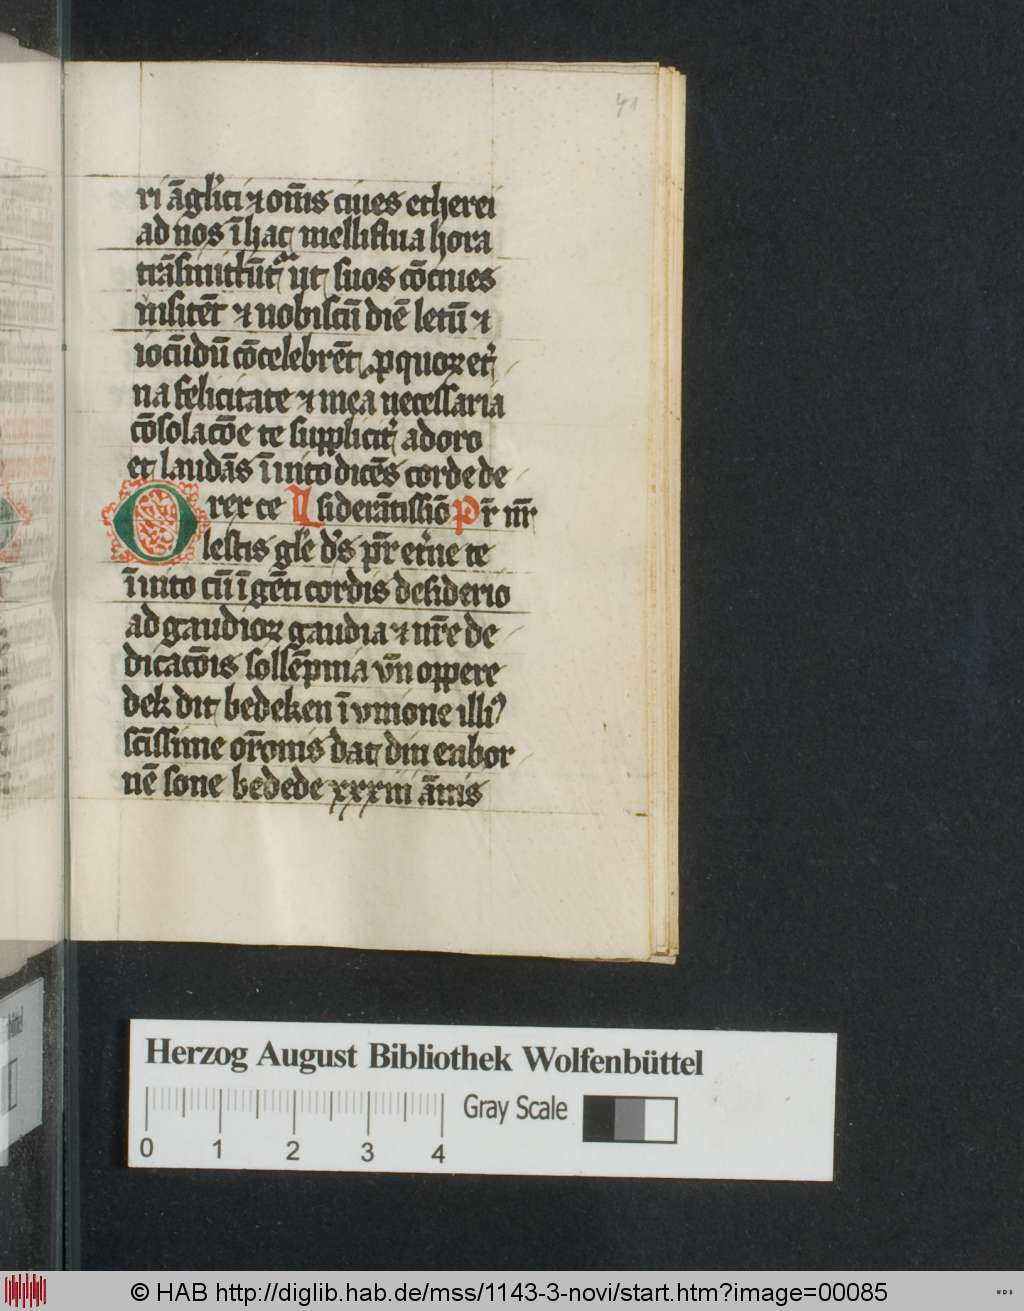 41
ri āgl'ici ⁊ om̄s ciues etherei
ad nos ī hac melliflua hora
trāsmittūt' ut suos cōciues
visitēt ⁊ nobiscū diē letū ⁊
iocūdū cōcelebrēt . p quoꝝ et'
na felicitate ⁊ mea necessaria
cōsolacōe te supplicit' adoro
et laudās īuito dicēs corde de
ore te Desiderātissīo Pr̄ nr̄
O lestis gl'e d's pr̄ et'ne te
īuito cū īgēti cordis desiderio
ad gaudioꝝ gaudia ⁊ nr̄e de
dicacōis sollēpnia vn̄ oppere
dek dit bedeken ī vnione illi⁹
sc̄issime or̄onis dat din enbor
nē sone bedede xxxiii ānis
Herzog August Bibliothek Wolfenbüttel
0 1 2 3 4
Gray Scale
© HAB http://diglib.hab.de/mss/1143-3-novi/start.htm?image=00085